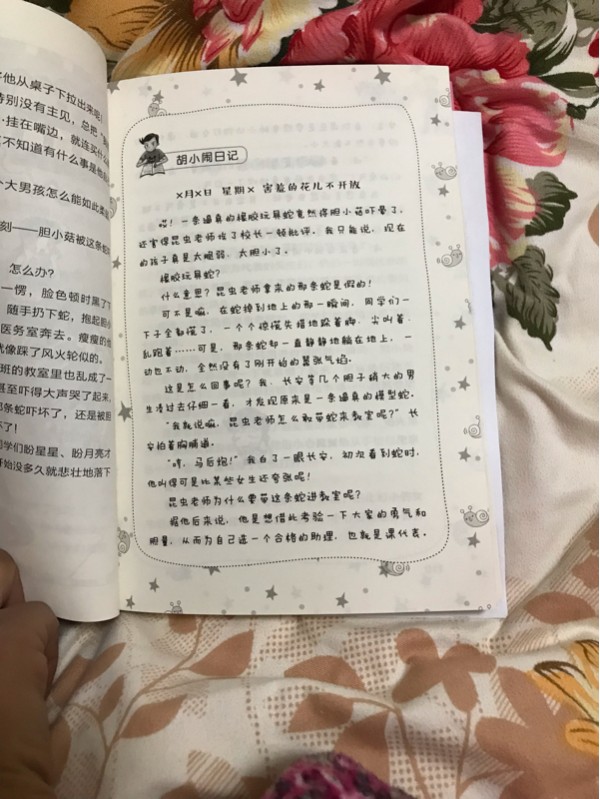 他从桌子下拉出来吧！
特别没有主见，总把“
挂在嘴边，就连买
不知道有什么事是他
个大男孩怎么能如此
刻——胆小菇被这条
怎么办？
一愣，脸色顿时黑了
随手扔下蛇，抱起胆
医务室奔去。瘦瘦的他
就像踩了风火轮似的。
班的教室里也乱成了一
甚至吓得大声哭了起来，
那条蛇吓坏了，还是被胆
坏了！
同学们盼星星、盼月亮才
开始没多久就悲壮地落下
胡小闹日记
×月×日 星期× 害羞的花儿不开放
一条逼真的橡胶玩具蛇竟然将胆小菇吓晕了，
还害得昆虫老师挨了校长一顿批评。我只能说，现在
的孩子真是太脆弱、太胆小了。
橡胶玩具蛇？
什么意思？昆虫老师拿来的那条蛇是假的！
可不是嘛。在蛇掉到地上的那一瞬间，同学们一
下子全都慌了，一个个惊慌失措地跺着脚，尖叫着，
乱跑着……可是，那条蛇却一直静静地躺在地上，一
动也不动，全然没有了刚开始的嚣张气焰。
这是怎么回事呢？我、长安等几个胆子稍大的男
生凑过去仔细一看，才发现原来是一条逼真的模型蛇。
“我就说嘛，昆虫老师怎么敢带蛇来教室呢？”长
安拍着胸脯道。
“哼，马后炮！”我白了一眼长安，初次看到蛇时，
他叫得可是比某些女生还夸张呢！
昆虫老师为什么要带这条蛇进教室呢？
据他后来说，他是想借此考验一下大家的勇气和
胆量，从而为自己选一个合格的助理，也就是课代表。